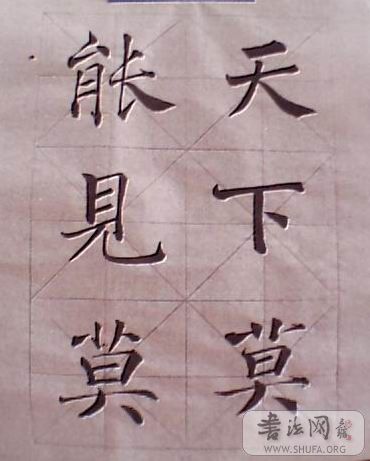 天下莫
能見莫
書法网
WWW.SHUFA.ORG